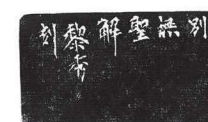 別無聖解
黎
刻